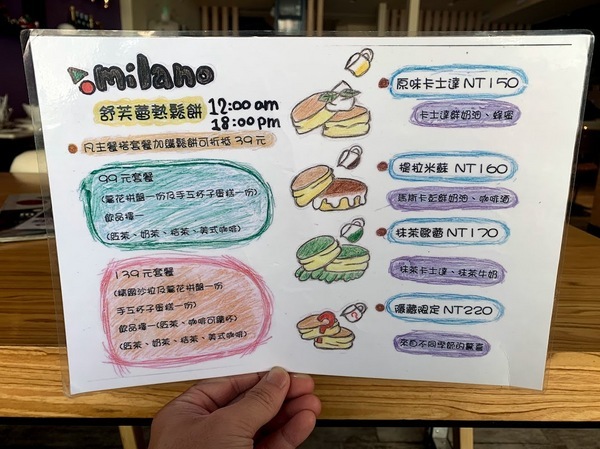 milano
舒芙蕾熱鬆餅
12:00 am
18:00 pm
凡主餐搭套餐加購鬆餅可折抵39元
99元套餐
(薯花拼盤一份及手工杯子蛋糕一份)
飲品擇一
(晒茶、奶茶、桔茶、美式咖啡)
139元套餐
(精緻沙拉及薯花拼盤一份
手工杯子蛋糕一份)
飲品擇一(晒茶、咖啡可續杯)
(晒茶、奶茶、桔茶、美式咖啡)
原味卡士達 NT150
卡士達鮮奶油、蜂蜜
提拉米蘇 NT160
馬斯卡彭鮮奶油、咖啡酒
抹茶歐蕾 NT170
抹茶卡士達、抹茶牛奶
隱藏限定 NT220
來自不同季節的驚喜